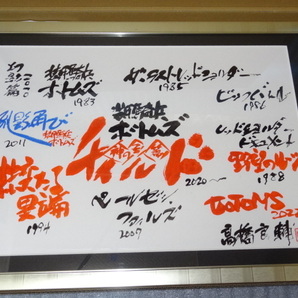 幻影篇
2010
装甲騎兵
ボトムズ
1983
ザ・ラストレッドショルダー
1985
ビッグバトル
1986
孤影再び
装甲騎兵
ボトムズ
2011
装甲騎兵
ボトムズ
チャイルド
2020～
レッドショルダー
ドキュメント
野望のルーツ
1988
赫奕たる
異端
1994
ペールゼン
ファイルズ
2007
VOTOMS
2022
高橋良輔